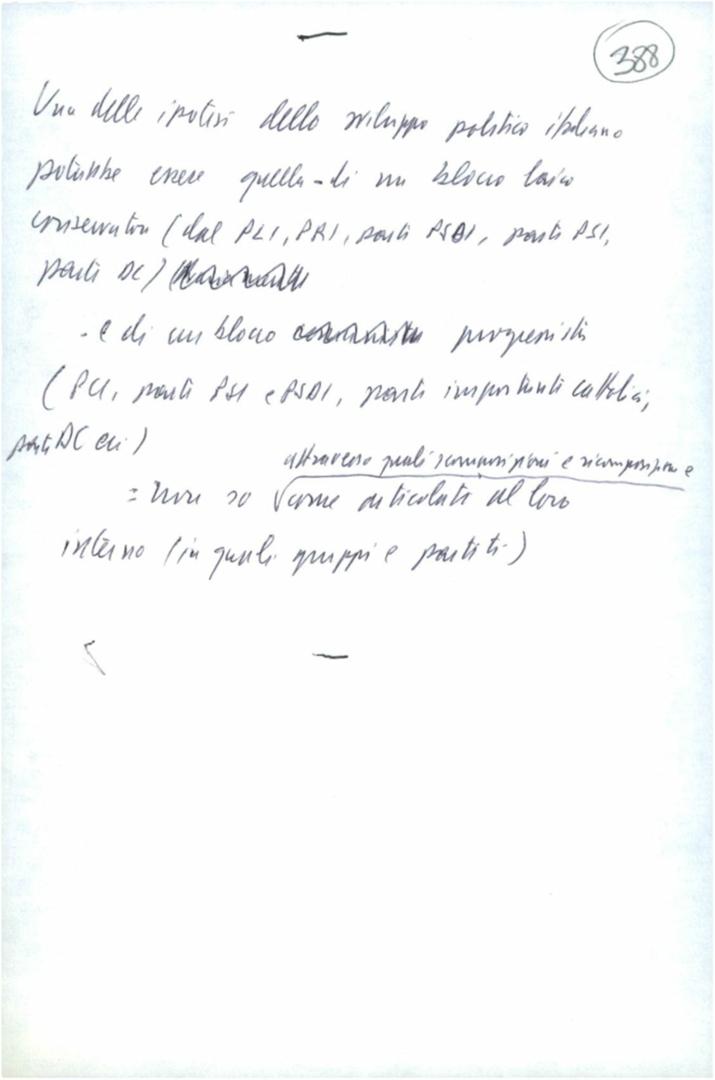 388
Una delle ipotesi dello sviluppo politico italiano
potrebbe essere quella - di un blocco laico
conservatore (dal PLI, PRI, parti PSDI, parti PSI,
parti DC)
- e di un blocco progressista
(PCI, parti PSI e PSDI, parti importanti cattolici,
parti DC ecc.)
attraverso quali scomposizioni e ricomposizioni e
= non so come articolati al loro
interno (in quali gruppi e partiti)